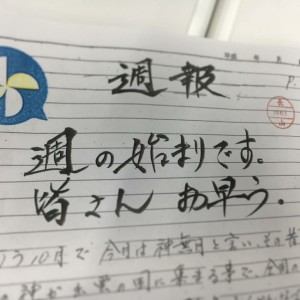 平成 年 月
P.
週報
週の始まりです。
皆さん お早う。
う10月で 今月は神無月と言い、その昔
神が出雲の国に集まる事で、全国の